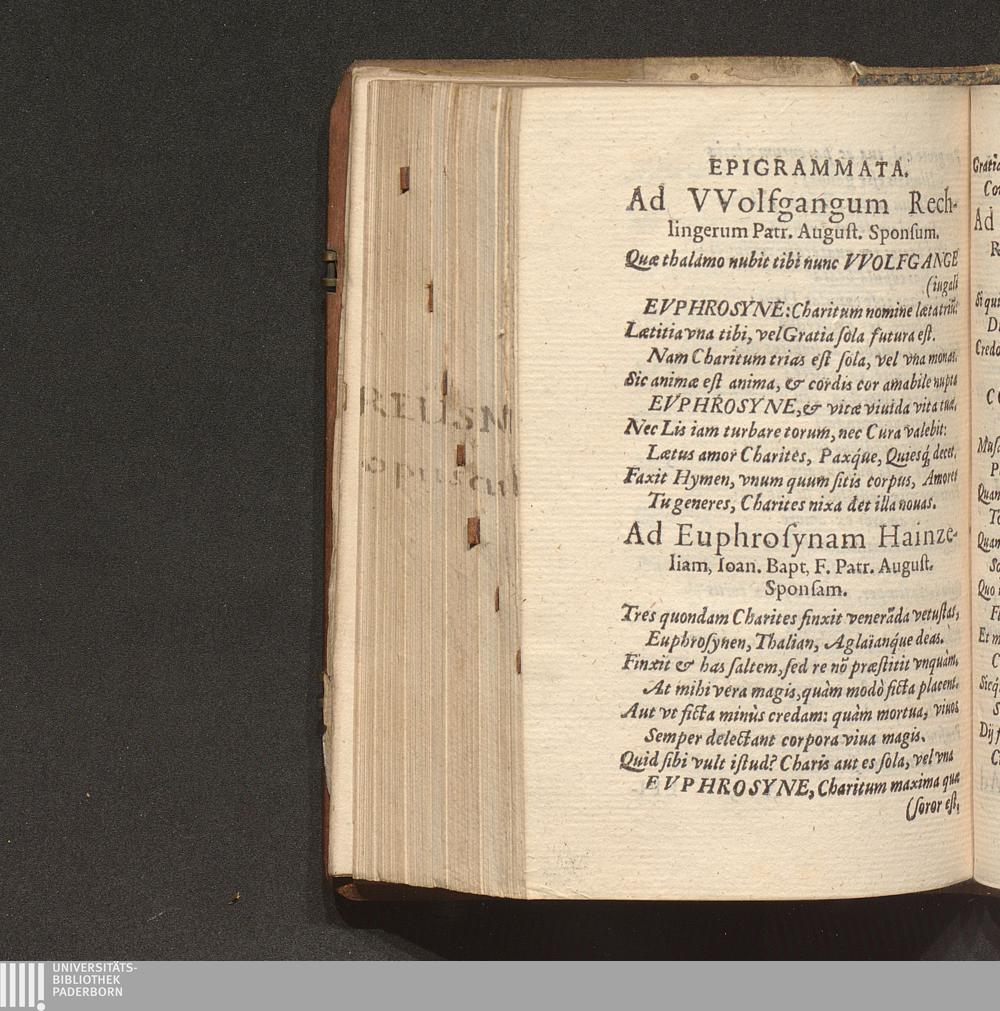 EPIGRAMMATA.
Ad VVolfgangum Rech-
lingerum Patr. Auguſt. Sponſum.
Quæ thalamo nubit tibi nunc VVOLFGANGE
(iugali
EVPHROSYNE: Charitum nomine læta triũ:
Lætitia vna tibi, vel Gratia ſola futura eſt.
Nam Charitum trias eſt ſola, vel vna monas.
Sic animæ eſt anima, & cordis cor amabile nupta
EVPHROSYNE, & vitæ viuida vita tuæ.
Nec Lis iam turbare torum, nec Cura valebit:
Lætus amor Charites, Paxque, Quiesq́; decet.
Faxit Hymen, vnum quum ſitis corpus, Amores
Tu generes, Charites nixa det illa nouas.
Ad Euphroſynam Hainze-
liam, Ioan. Bapt, F. Patr. Auguſt.
Sponſam.
Tres quondam Charites finxit venerãda vetuſtas,
Euphroſynen, Thalian, Aglaianque deas.
Finxit & has ſaltem, ſed re nõ præſtitit vnquàm,
At mihi vera magis, quàm modò ficta placent.
Aut vt ficta minùs credam: quàm mortua, viuos
Semper delectant corpora viua magis.
Quid ſibi vult iſtud? Charis aut es ſola, vel vna
EVPHROSYNE, Charitum maxima quæ
(ſoror eſt,
Ad
UNIVERSITÄTS-
BIBLIOTHEK
PADERBORN